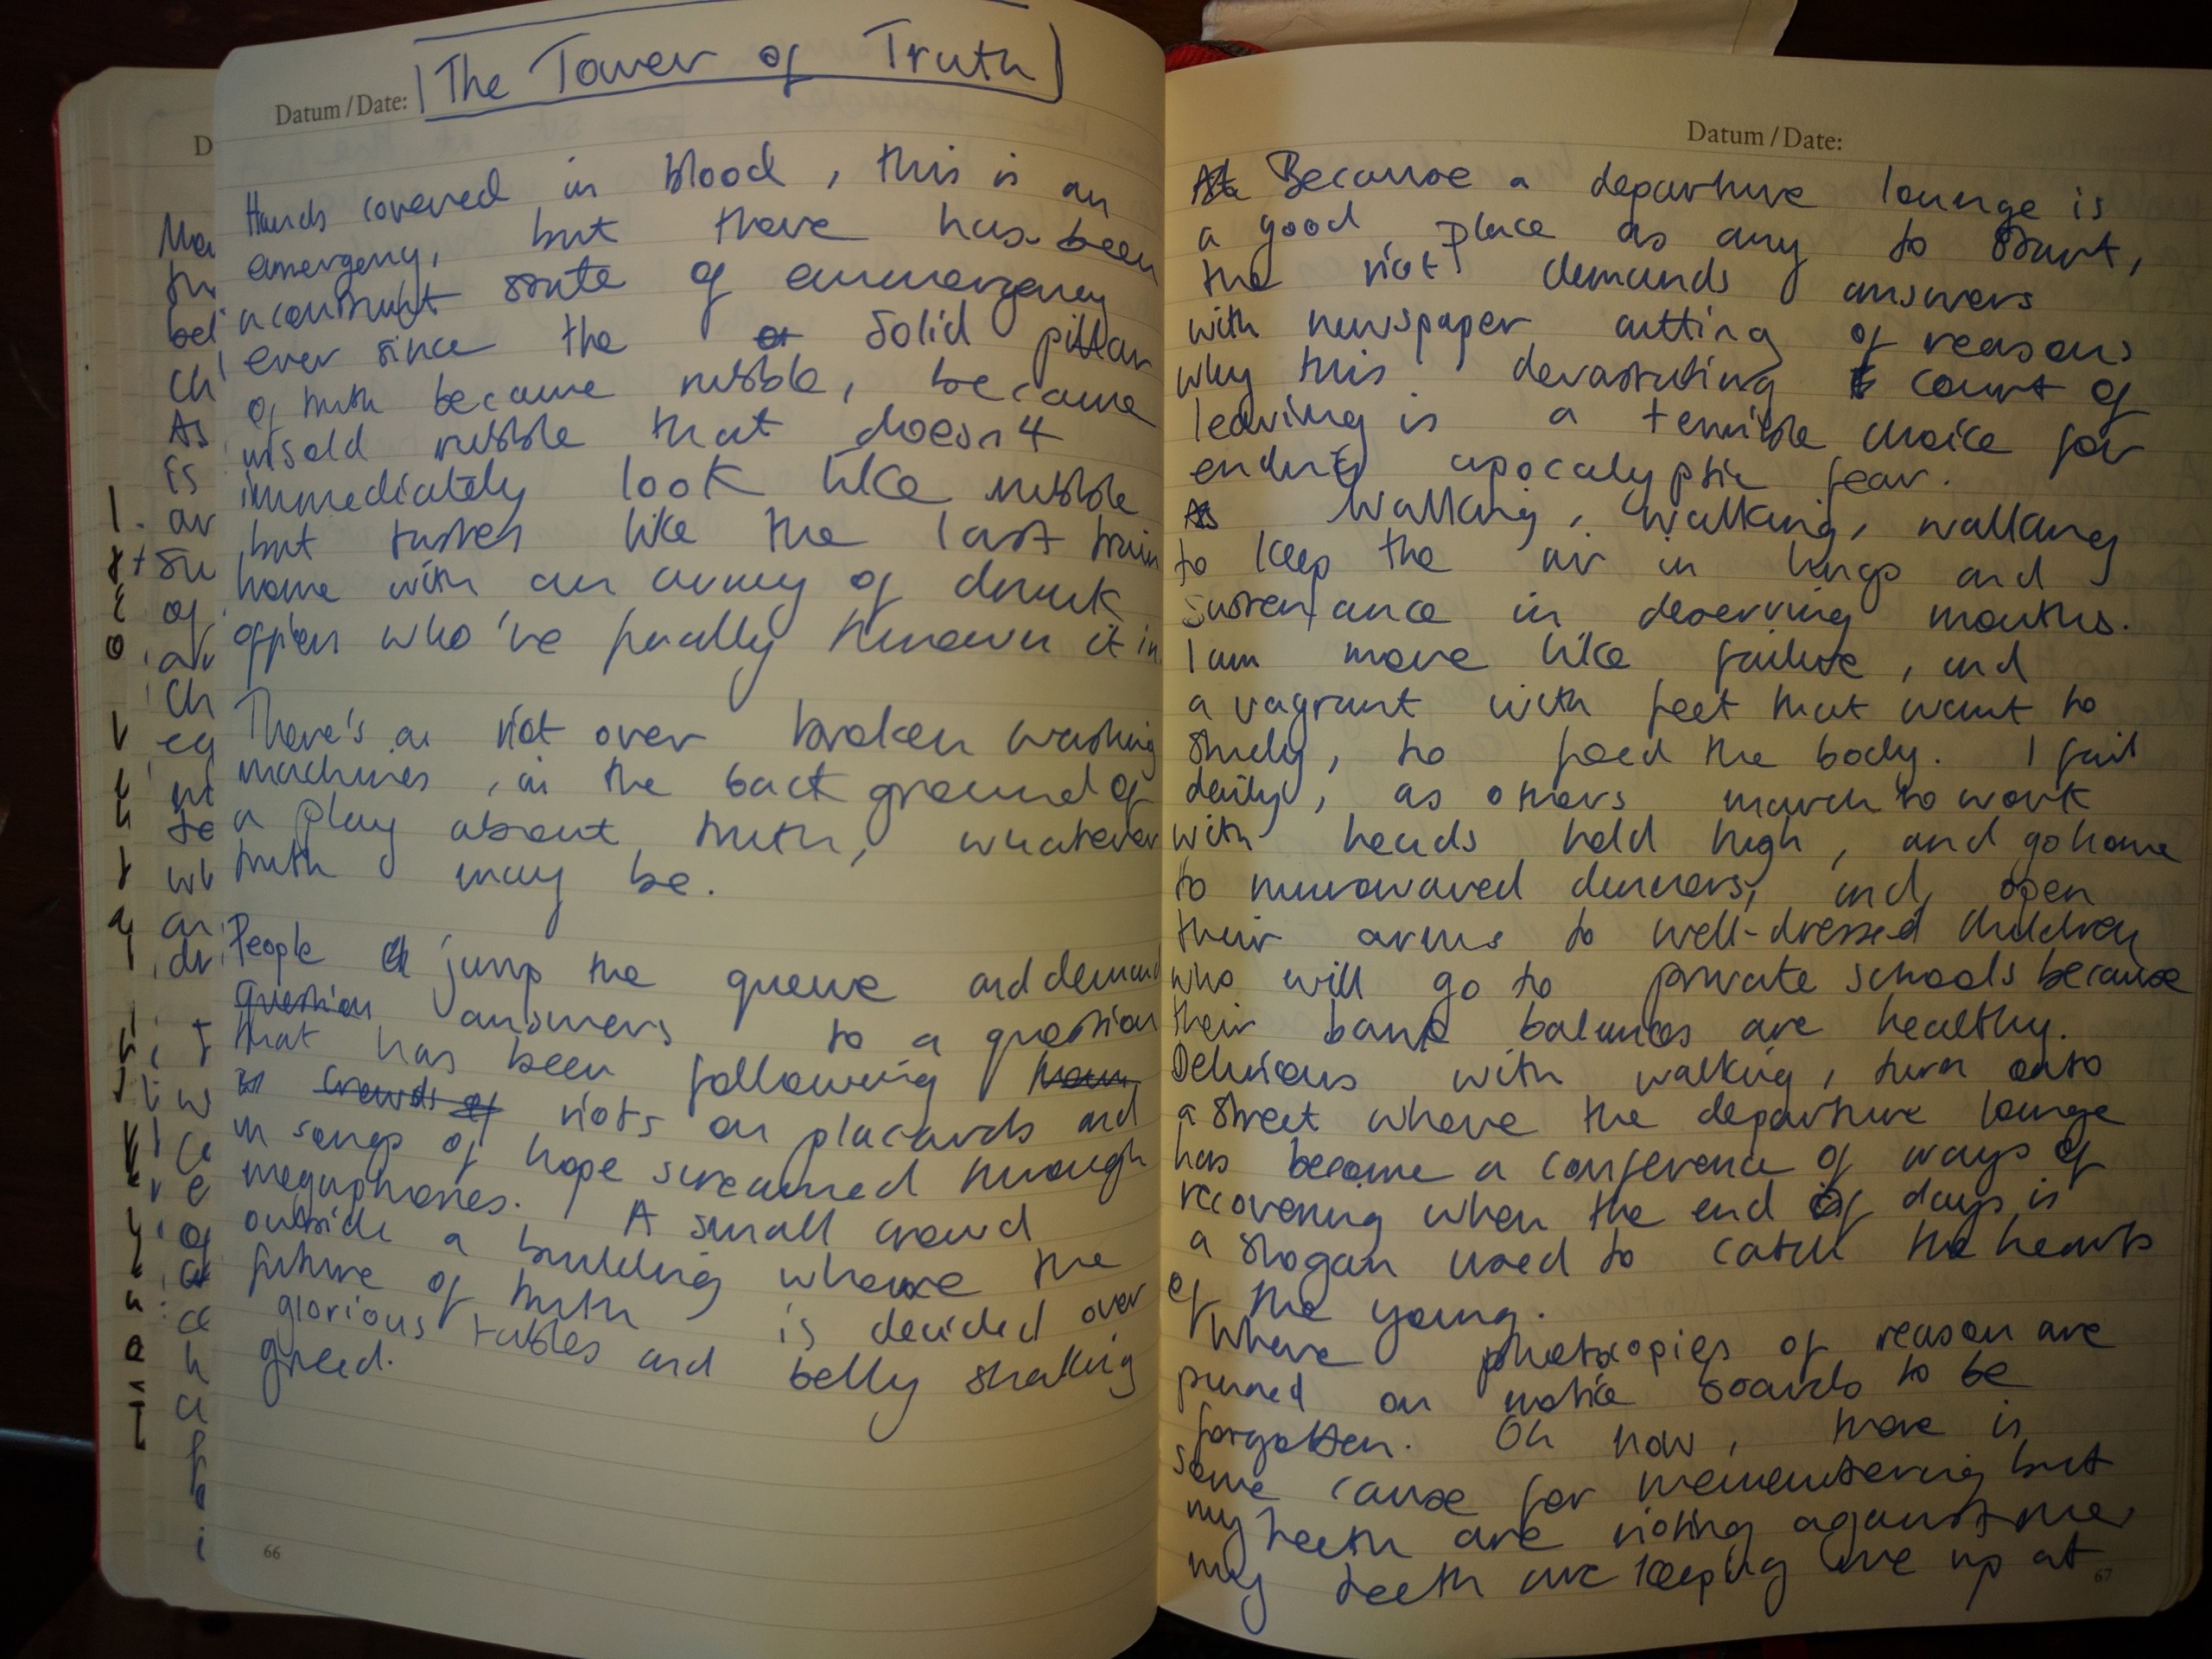 The Tower of Truth
Datum / Date:
Hands covered in blood, this is an
emergency, but there has been
a constant state of emmergency
ever since the solid pillar
of truth became rubble, became
unsold rubble that doesn't
immediately look like rubble
but tastes like the last train
home with an army of drunk
who've finally thrown it in
There's a riot over broken washing
machines, in the background of
a play about truth, whatever
truth may be.
People jump the queue and demand
question answers to a question
that has been following them
in crowds of riots on placards and
in songs of hope screamed through
megaphones. A small crowd
outside a building where the
future of truth is decided over
glorious tables and belly shaking
greed.
66
Datum / Date:
Because a departure lounge is
a good place as any to start,
the riot demands answers
with newspaper cutting of reasons
why this devastating court of
leaving is a terrible choice for
apocalyptic fear.
As walking, walking, walking
to keep the air in lungs and
sustenance in deserving mouths.
I am more like failure, and
a vagrant with feet that want to
study, to feed the body. I fail
daily, as others march to work
with heads held high, and go home
to microwaved dinners, and open
their arms to well-dressed children
who will go to private schools because
their bank balances are healthy.
Delirious with walking, turn onto
a street where the departure lounge
has become a conference of ways of
recovering when the end of days is
a slogan used to catch the hearts
of the young.
Where photocopies of reason are
pinned on notice boards to be
forgotten. Oh now, there is
some cause for remembering but
my teeth are rioting against me
my teeth are keeping me up at
67